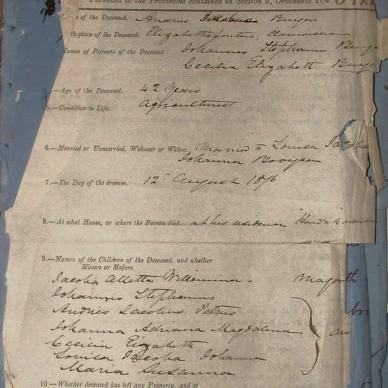 Pursuant to the Provisions contained in Section 9, Ordinance No.
of the Deceased, Andries Burger
place of the Deceased, Elizabethfontein,
Names of Parents of the Deceased, Johannes Stephanus
Cecilia Elizabeth
4.—Age of the Deceased, 42 Years
5.—Condition in Life, Agriculturist
6.—Married or Unmarried, Widower or Widow, Married to Louisa Jacoba
Johanna Booysen
7.—The Day of the decease, 12th August 1876
8.—At what House, or where the Person died, at his residence
9.—Names of the Children of the Deceased, and whether
Minors or Majors
Jacoba Aletta Willemina - Major
Johannes Stephanus
Andries Jacobus Petrus
Johanna Adriana Magdalena
Cecilia Elizabeth
Louisa Jacoba Johanna
Maria Susanna
10.—Whether deceased has left any Property, and of